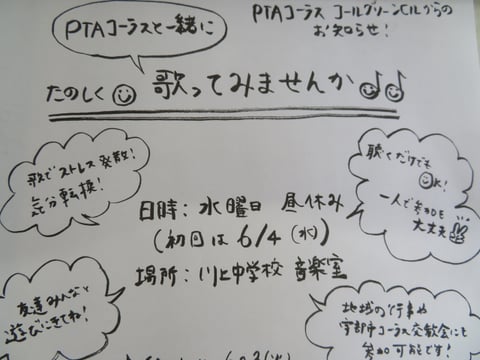 PTAコーラスと一緒に
PTAコーラス コールグリーンCILからの
お知らせ!
たのしく 歌ってみませんか
歌でストレス発散!
気分転換!
聴くだけでも
OK!
一人で参加も
大丈夫
日時: 水曜日 昼休み
(初回は6/4(水))
場所: 川上中学校 音楽室
友達みんなと
遊びにきてね!
地域の行事や
宇部市コーラス交歓会にも
参加可能です!